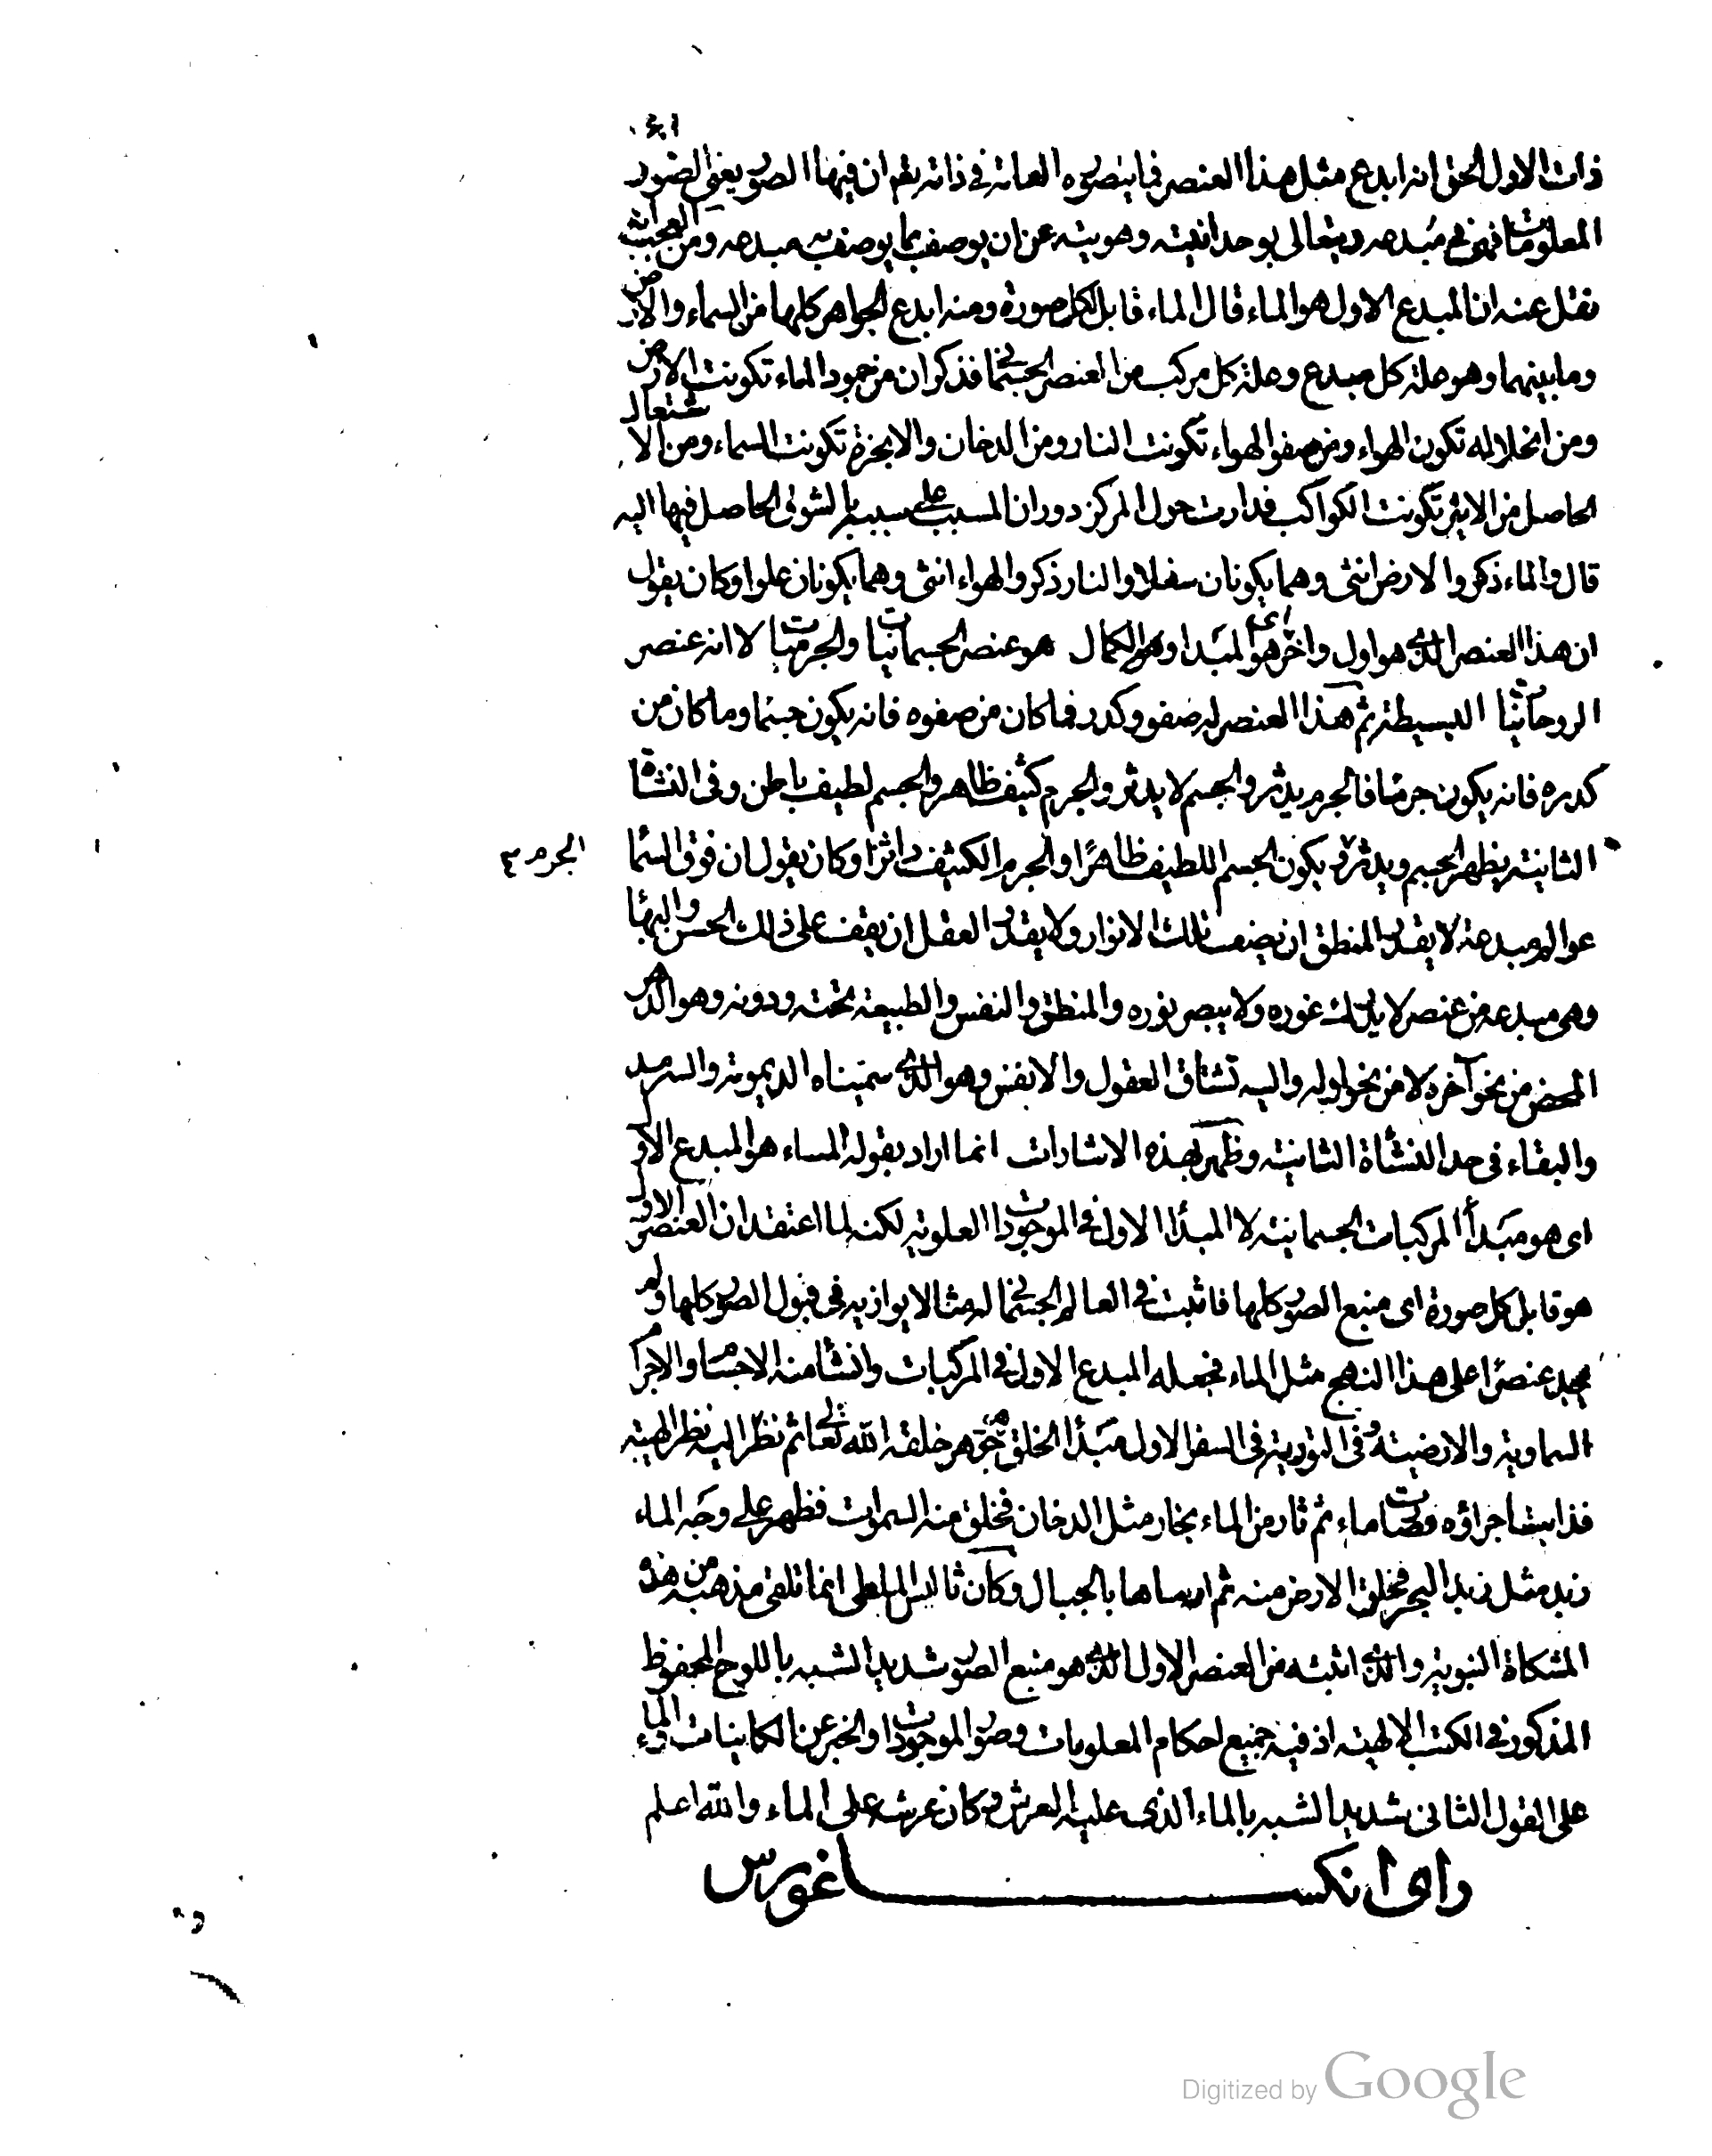 ذات الاول الحق انه ابدع مثل هذا العنصر فما يتصوره العامة في ذاته تعم ان فيها الصور يعني الصور
المعلومات فهي في مبدعه ويتعالى بوحدانيته وهويته عن ان يوصف بما يوصف به مبدعه ومن العجب انه
نقل عنه ان المبدع الاول هو الماء قال الماء قابل لكل صورة ومنه ابدع الجواهر كلها من السماء والارض
وما بينهما وهو علة كل مبدع وعلة كل مركب من العنصر الجسماني فذكر ان من جمود الماء تكونت الارض
ومن انحلاله تكون الهواء ومن صفو الهواء تكونت النار ومن الدخان والابخرة تكونت السماء ومن الاشتعال
الحاصل من الاثير تكونت الكواكب فدارت حول المركز دوران المسبب على سببه بالشوق الحاصل فيها اليه
قال والماء ذكر والارض انثى وهما يكونان سفلا والنار ذكر والهواء انثى وهما يكونان علوا وكان يقول
ان هذا العنصر الذي هو اول واخر اي هو المبدا وهو الكمال هو عنصر الجسمانيات والجرميات لا انه عنصر
الروحانيات البسيطة ثم هذا العنصر له صفو وكدر فما كان من صفوه فانه يكون جسما وما كان من
كدره فانه يكون جرما فالجرم يدثر والجسم لا يدثر والجرم كثيف ظاهر والجسم لطيف باطن وفي النشاة
الثانية يظهر الجسم ويدثر و يكون الجسم اللطيف ظاهرا والجرم الكثيف داثرا وكان يقول ان فوق السما
الجرم
عوالم مبدعة لا يقدر المنطق ان يصف تلك الانوار ولا يقدر العقل ان يقف على ذلك الحسن والبها
وهي مبدعة من عنصر لا يدرك غوره ولا يبصر نوره والمنطق والنفس والطبيعة تحته ودونه وهو الدهر
المحض من نحو آخره لا من نحو اوله واليه تشتاق العقول والانفس وهو الذي سميناه الديمومة والسرمد
والبقاء في حد النشأة الثانية وظهر بهذه الاشارات انما اراد بقوله الماء هو المبدع الاول
اي هو مبدأ المركبات الجسمانية لا المبدأ الاول في الموجودات العلوية لكنه لما اعتقد ان العنصر الاول
هو قابل كل صورة اى منبع الصور كلها فاثبت في العالم الجسماني له مثالا يوازيه في قبول الصور كلها ولم
يجد عنصرا على هذا النهج مثل الماء فجعله المبدع الاول في المركبات وانشأ منه الاجسام والاجرام
السماوية والارضية وفي التورية في السفر الاول مبدأ الخلق هو جوهر خلقه الله تعالى ثم نظر اليه نظر الهيبة
فذابت اجزاؤه وصارت ماء ثم ثار من الماء بخار مثل الدخان فخلق منه السموات فظهر على وجه الماء
زبد مثل زبد البحر فخلق الارض منه ثم ارساها بالجبال وكان ثاليس الملطي انما تلقى مذهبه من هذه
المشكاة النبوية والذي اثبته من العنصر الاول الذي هو منبع الصور شديد الشبه باللوح المحفوظ
المذكور في الكتب الالهية اذ فيه جميع احكام المعلومات وصور الموجودات والخبر عن الكاينات والماء
على القول الثاني شديد الشبه بالماء الذي عليه العرش وكان عرشه على الماء والله اعلم
راى انكساغورس
Digitized by Google